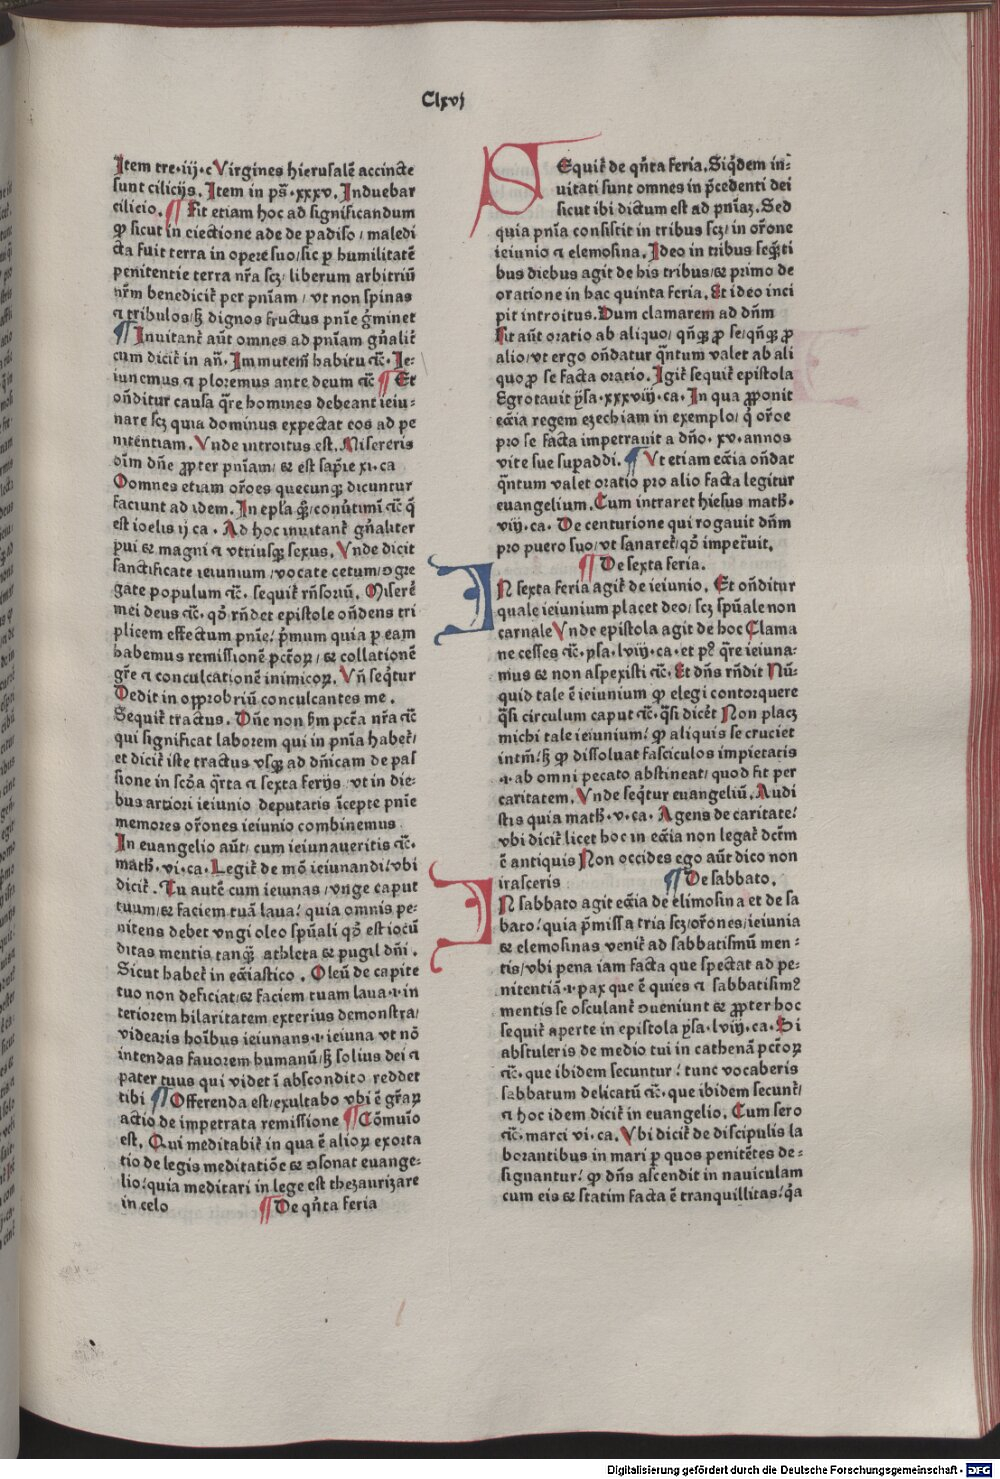 Clxvj
Item tre·iij·c Virgines hierusalē accincte
sunt cilicijs. Item in ps̄·xxxv. Induebar
cilicio. ¶ Fit etiam hoc ad significandum
ꝙ sicut in eiectione ade de padiso / maledi
cta fuit terra in opere suo/sic p humilitatē
penitentie terra nr̄a scꝫ/ liberum arbitriū
nr̄m benedicit̄ per pnīam / vt non spinas
⁊ tribulos/sꝫ dignos fructus pnīe gʼminet
¶ Inuitant̄ aūt omnes ad pnīam gn̄alit̄
cum dicit̄ in an̄. Immutem̄ habitu ⁊c̄· Ie⸗
iunemus ⁊ ploremus ante deum ⁊c̄ ¶ Et
on̄ditur causa q̄re homines debeant ieiu⸗
nare scꝫ quia dominus expectat eos ad pe
nitentiam. Vnde introitus est. Misereris
oīm dn̄e ꝓpter pnīam/ & est sapīe xi·ca
Oomnes etiam or̄oes quecunqꝫ dicuntur
faciunt ad idem. In epl̄a q̄ꝫ/conūtimī ⁊c̄ q̄
est ioelis ij ca· Ad hoc inuitant̄ gn̄aliter
pui & magni ⁊ vtriusqꝫ sexus. Vnde dicit
sanctificate ieiunium/vocate cetum/ɔgre
gate populum ⁊c̄· sequit̄ rn̄soriū. Miserē
mei deus ⁊c̄· qd̄ rn̄det epistole on̄dens tri
plicem effectum pnīe/ p̄mum quia p eam
habemus remissionē pctōꝝ/& collationē
gr̄e ⁊ conculcationē inimicoꝝ. Vn̄ seq̄tur
Dedit in opprobriū conculcantes me.
Sequit̄ tractus. Dn̄e non s̄m pctā nr̄a ⁊c̄
qui significat laborem qui in pnīa habet̄/
et dicit̄ iste tractus vsqꝫ ad dn̄icam de pas
sione in scd̄a q̄rta ⁊ sexta ferijs/vt in die⸗
bus artiori ieiunio deputatis īcepte pnīe
memores or̄ones ieiunio combinemus
In euangelio aūt/ cum ieiunaueritis ⁊c̄·
math̄·vi·ca·Legit̄ de mō ieiunandi/vbi
dicit̄. Tu autē cum ieiunas/vnge caput
tuum/& faciem tuā laua/ quia omnis pe⸗
nitens debet vngi oleo spūali qd̄ est iocū
ditas mentis tanqꝫ athleta & pugil dn̄i.
Sicut habet̄ in ecc̄iastico. Oleū de capite
tuo non deficiat/& faciem tuam laua·i·in
teriorem hilaritatem exterius demonstra/
videaris hoībus ieiunans·i·ieiuna vt nō
intendas fauorem humanū/sꝫ solius dei ⁊
pater tuus qui videt ī abscondito reddet
tibi ¶ Offerenda est/exultabo vbi ē gr̄aꝝ
actio de impetrata remissione ¶ Cōmuīo
est. Qui meditabit̄ in qua ē alioꝝ exorta
tio de legis meditatiōe & ɔsonat euange⸗
lio/quia meditari in lege est thezaurizare
in celo ¶ De qn̄ta feria
SEquit̄ de qn̄ta feria. Siq̄dem in⸗
uitati sunt omnes in p̄cedenti dei
sicut ibi dictum est ad pnīaꝫ. Sed
quia pnīa consistit in tribus scꝫ/in or̄one
ieiunio ⁊ elemosina. Ideo in tribus seq̄ti
bus diebus agit de his tribus/& primo de
oratione in hac quinta feria. Et ideo inci
pit introitus. Dum clamarem ad dn̄m
Fit aūt oratio ab aliquo/ qn̄qꝫ ꝓ se/qn̄qꝫ ꝓ
alio/vt ergo on̄datur q̄ntum valet ab ali
quo ꝓ se facta oratio. Igit̄ sequit̄ epistola
Egrotauit yſa·xxxviij·ca· In qua ꝓponit
ecc̄ia regem ezechiam in exemplo/ q̇ or̄oe
pro se facta impetrauit a dn̄o· xv·annos
vite sue supaddi. ¶ Vt etiam ecc̄ia on̄dat
q̄ntum valet oratio pro alio facta legitur
euangelium. Cum intraret hiesus math̄·
viij·ca· De centurione qui rogauit dn̄m
pro puero suo/vt sanaret̄/qd̄ impet̄uit.
¶ De sexta feria.
IN sexta feria agit̄ de ieiunio. Et on̄ditur
quale ieiunium placet deo/ scꝫ spūale non
carnale Vnde epistola agit de hoc Clama
ne cesses ⁊c̄·ysa·lviij·ca·et pꝰ q̄re ieiuna⸗
mus & non aspexisti ⁊c̄· Et dn̄s rn̄dit Nū⸗
quid tale ē ieiunium ꝙ elegi contorquere
q̄si circulum caput ⁊c̄·q̄si dicet̄ Non placꝫ
michi tale ieiunium/ ꝙ aliquis se cruciet
intm̄/ sꝫ ꝙ dissoluat fasciculos impietatis
·i·ab omni pecato abstineat/ quod fit per
caritatem. Vnde seq̄tur euangeliū. Audi
stis quia math̄·v·ca· Agens de caritate/
vbi dicit̄ licet hoc in ecc̄ia non legat̄ dctm̄
ē antiquis Non occides ego aūt dico non
irasceris ¶ De sabbato.
IN sabbato agit ecc̄ia de elimosina et de sa
bato/ quia p̄missa tria scꝫ/or̄ones/ieiunia
& elemosinas venit̄ ad sabbatismū men⸗
tis/vbi pena iam facta que spectat ad pe⸗
nitentiā·i·pax que ē quies ⁊ sabbatismꝰ
mentis se osculant̄ ɔueniunt & ꝓpter hoc
sequit̄ aperte in epistola yſa·lviij·ca·Si
abstuleris de medio tui in cathenā pctōꝝ
⁊c̄· que ibidem secuntur/ tunc vocaberis
sabbatum delicatū ⁊c̄· que ibidem secunt̄/
⁊ hoc idem dicit̄ in euangelio. Cum sero
⁊c̄·marci vi·ca. Vbi dicit̄ de discipulis la
borantibus in mari p quos penitētes de⸗
signantur/ ꝙ dn̄s ascendit in nauiculam
cum eis & statim facta ē tranquillitas/ q̇a
Digitalisierung gefördert durch die Deutsche Forschungsgemeinschaft - DFG